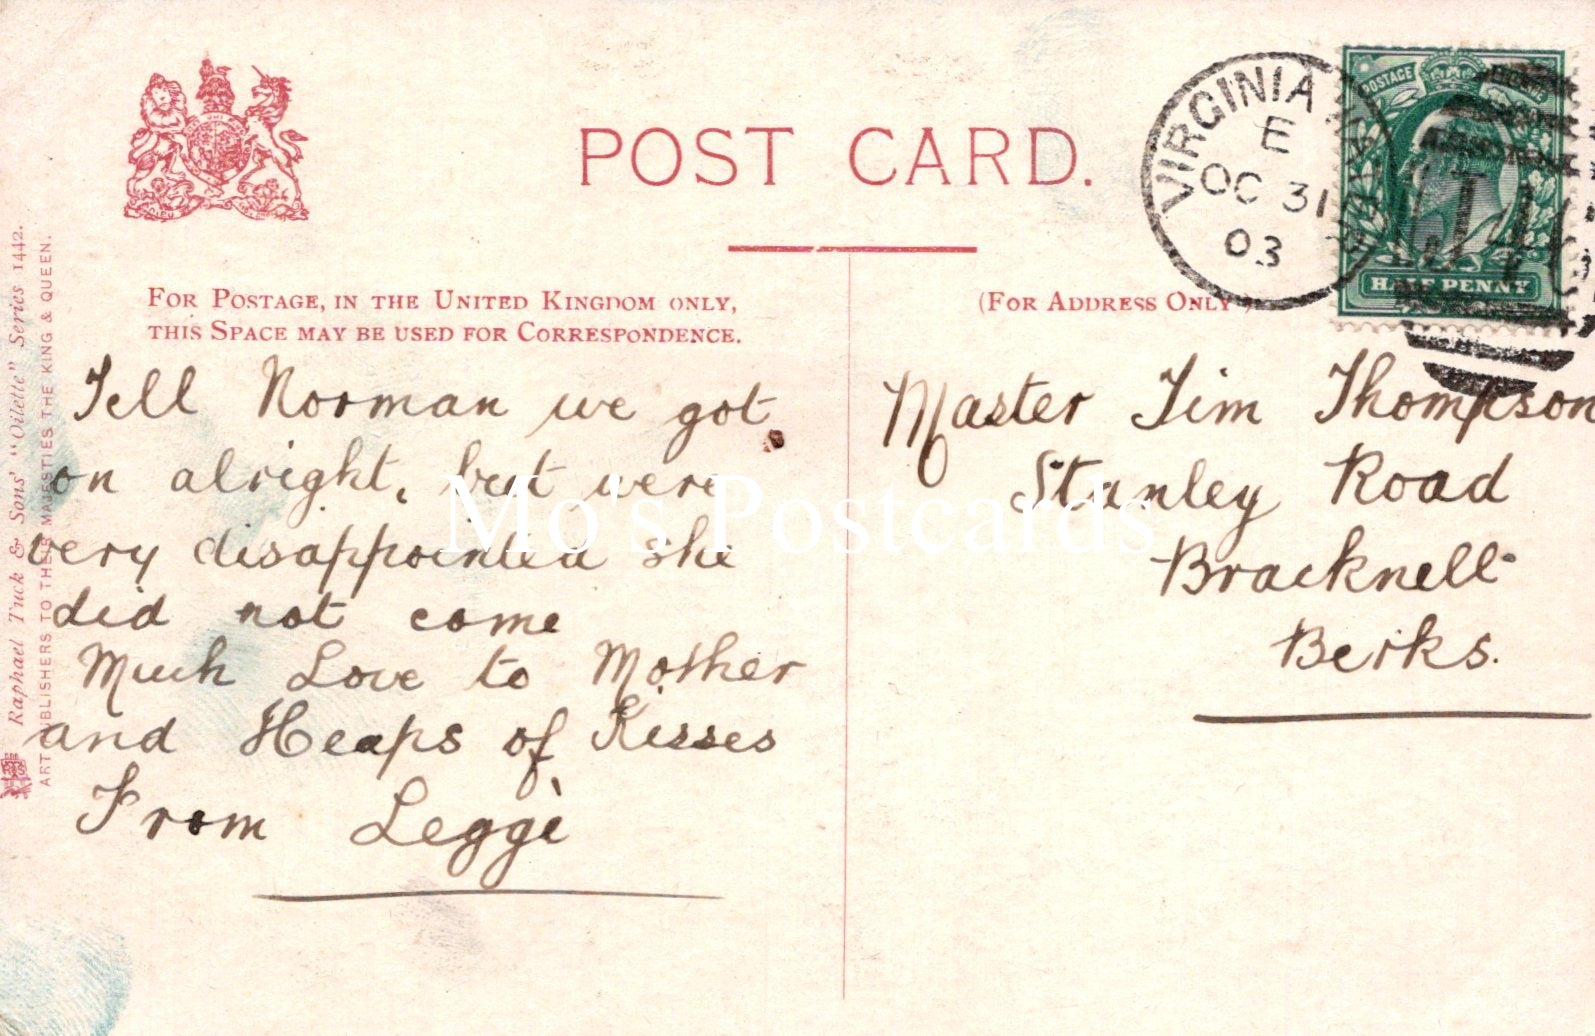 POST CARD.
FOR POSTAGE, IN THE UNITED KINGDOM ONLY,
THIS SPACE MAY BE USED FOR CORRESPONDENCE.
(FOR ADDRESS ONLY)
VIRGINIA WATER
E
OC 31
03
POSTAGE
HALF PENNY
Tell Norman we got
on alright, but were
very disappointed she
did not come
Much Love to Mother
and Heaps of Kisses
From Leggi
Master Jim Thompson
Stanley Road
Bracknell
Berks.
Raphael Tuck & Sons' "Oilette" Series 1442.
ART PUBLISHERS TO THEIR MAJESTIES THE KING & QUEEN.
Mo's Postcards